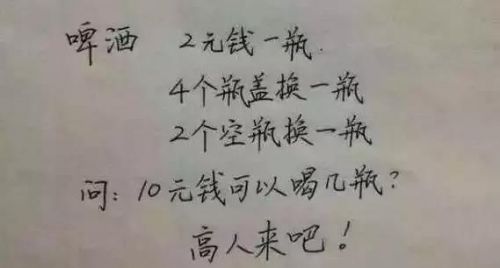 啤酒 2元钱一瓶.
4个瓶盖换一瓶
2个空瓶换一瓶
问:10元钱可以喝几瓶?
高人来吧!